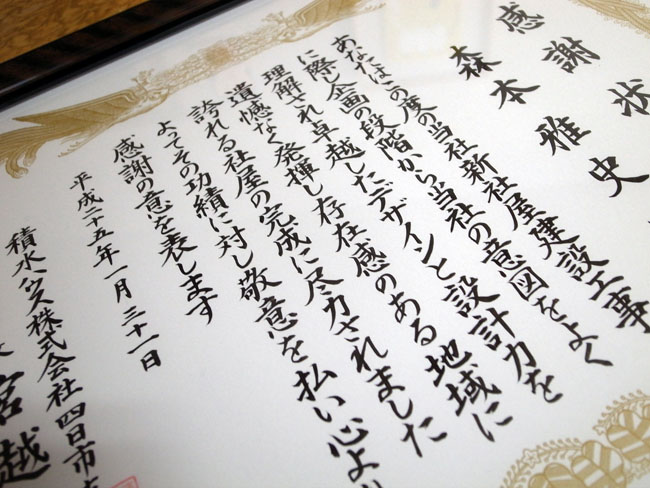 感謝状
森本雅史
あなたはこの度の当社新社屋建設工事
に際し企画の段階から当社の意図をよく
理解され卓越したデザインと設計力を
遺憾なく発揮し存在感のある地域に
誇れる社屋の完成に尽力されました
よってその功績に対し敬意を払い心より
感謝の意を表します
平成二十五年一月三十一日
積水ハウス株式会社四日市
宮越